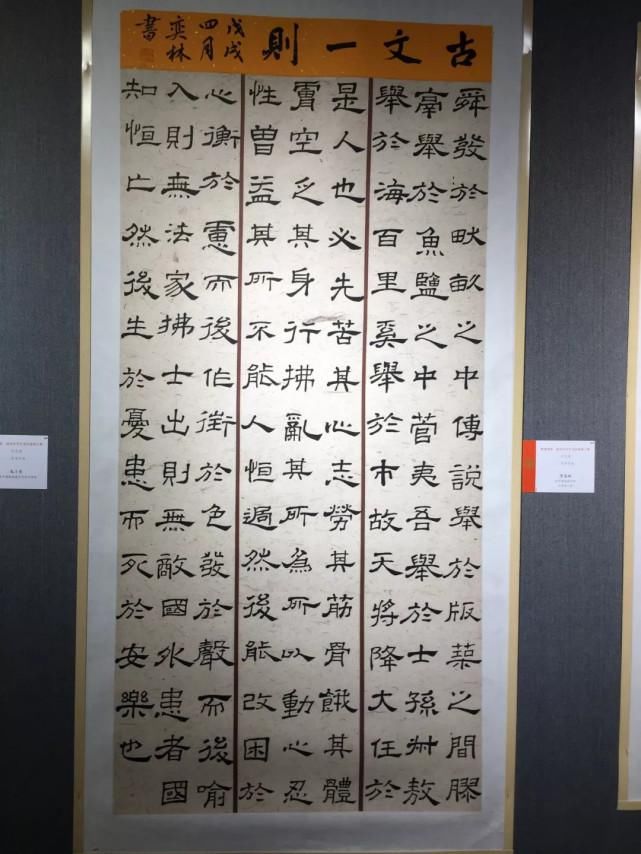 古文一則
戊戌
四月
奕林
書
舜發於畎畝之中傅說舉於版築之間膠
鬲舉於魚鹽之中菅夷吾舉於士孫叔敖
舉於海百里奚舉於市故天將降大任於
是人也必先苦其心志勞其筋骨餓其體
膚空乏其身行拂亂其所為所以動心忍
性曾益其所不能人恒過然後能改困於
心衡於慮而後作徵於色發於聲而後喻
入則無法家拂士出則無敵國外患者國
知恒亡然後生於憂患而死於安樂也